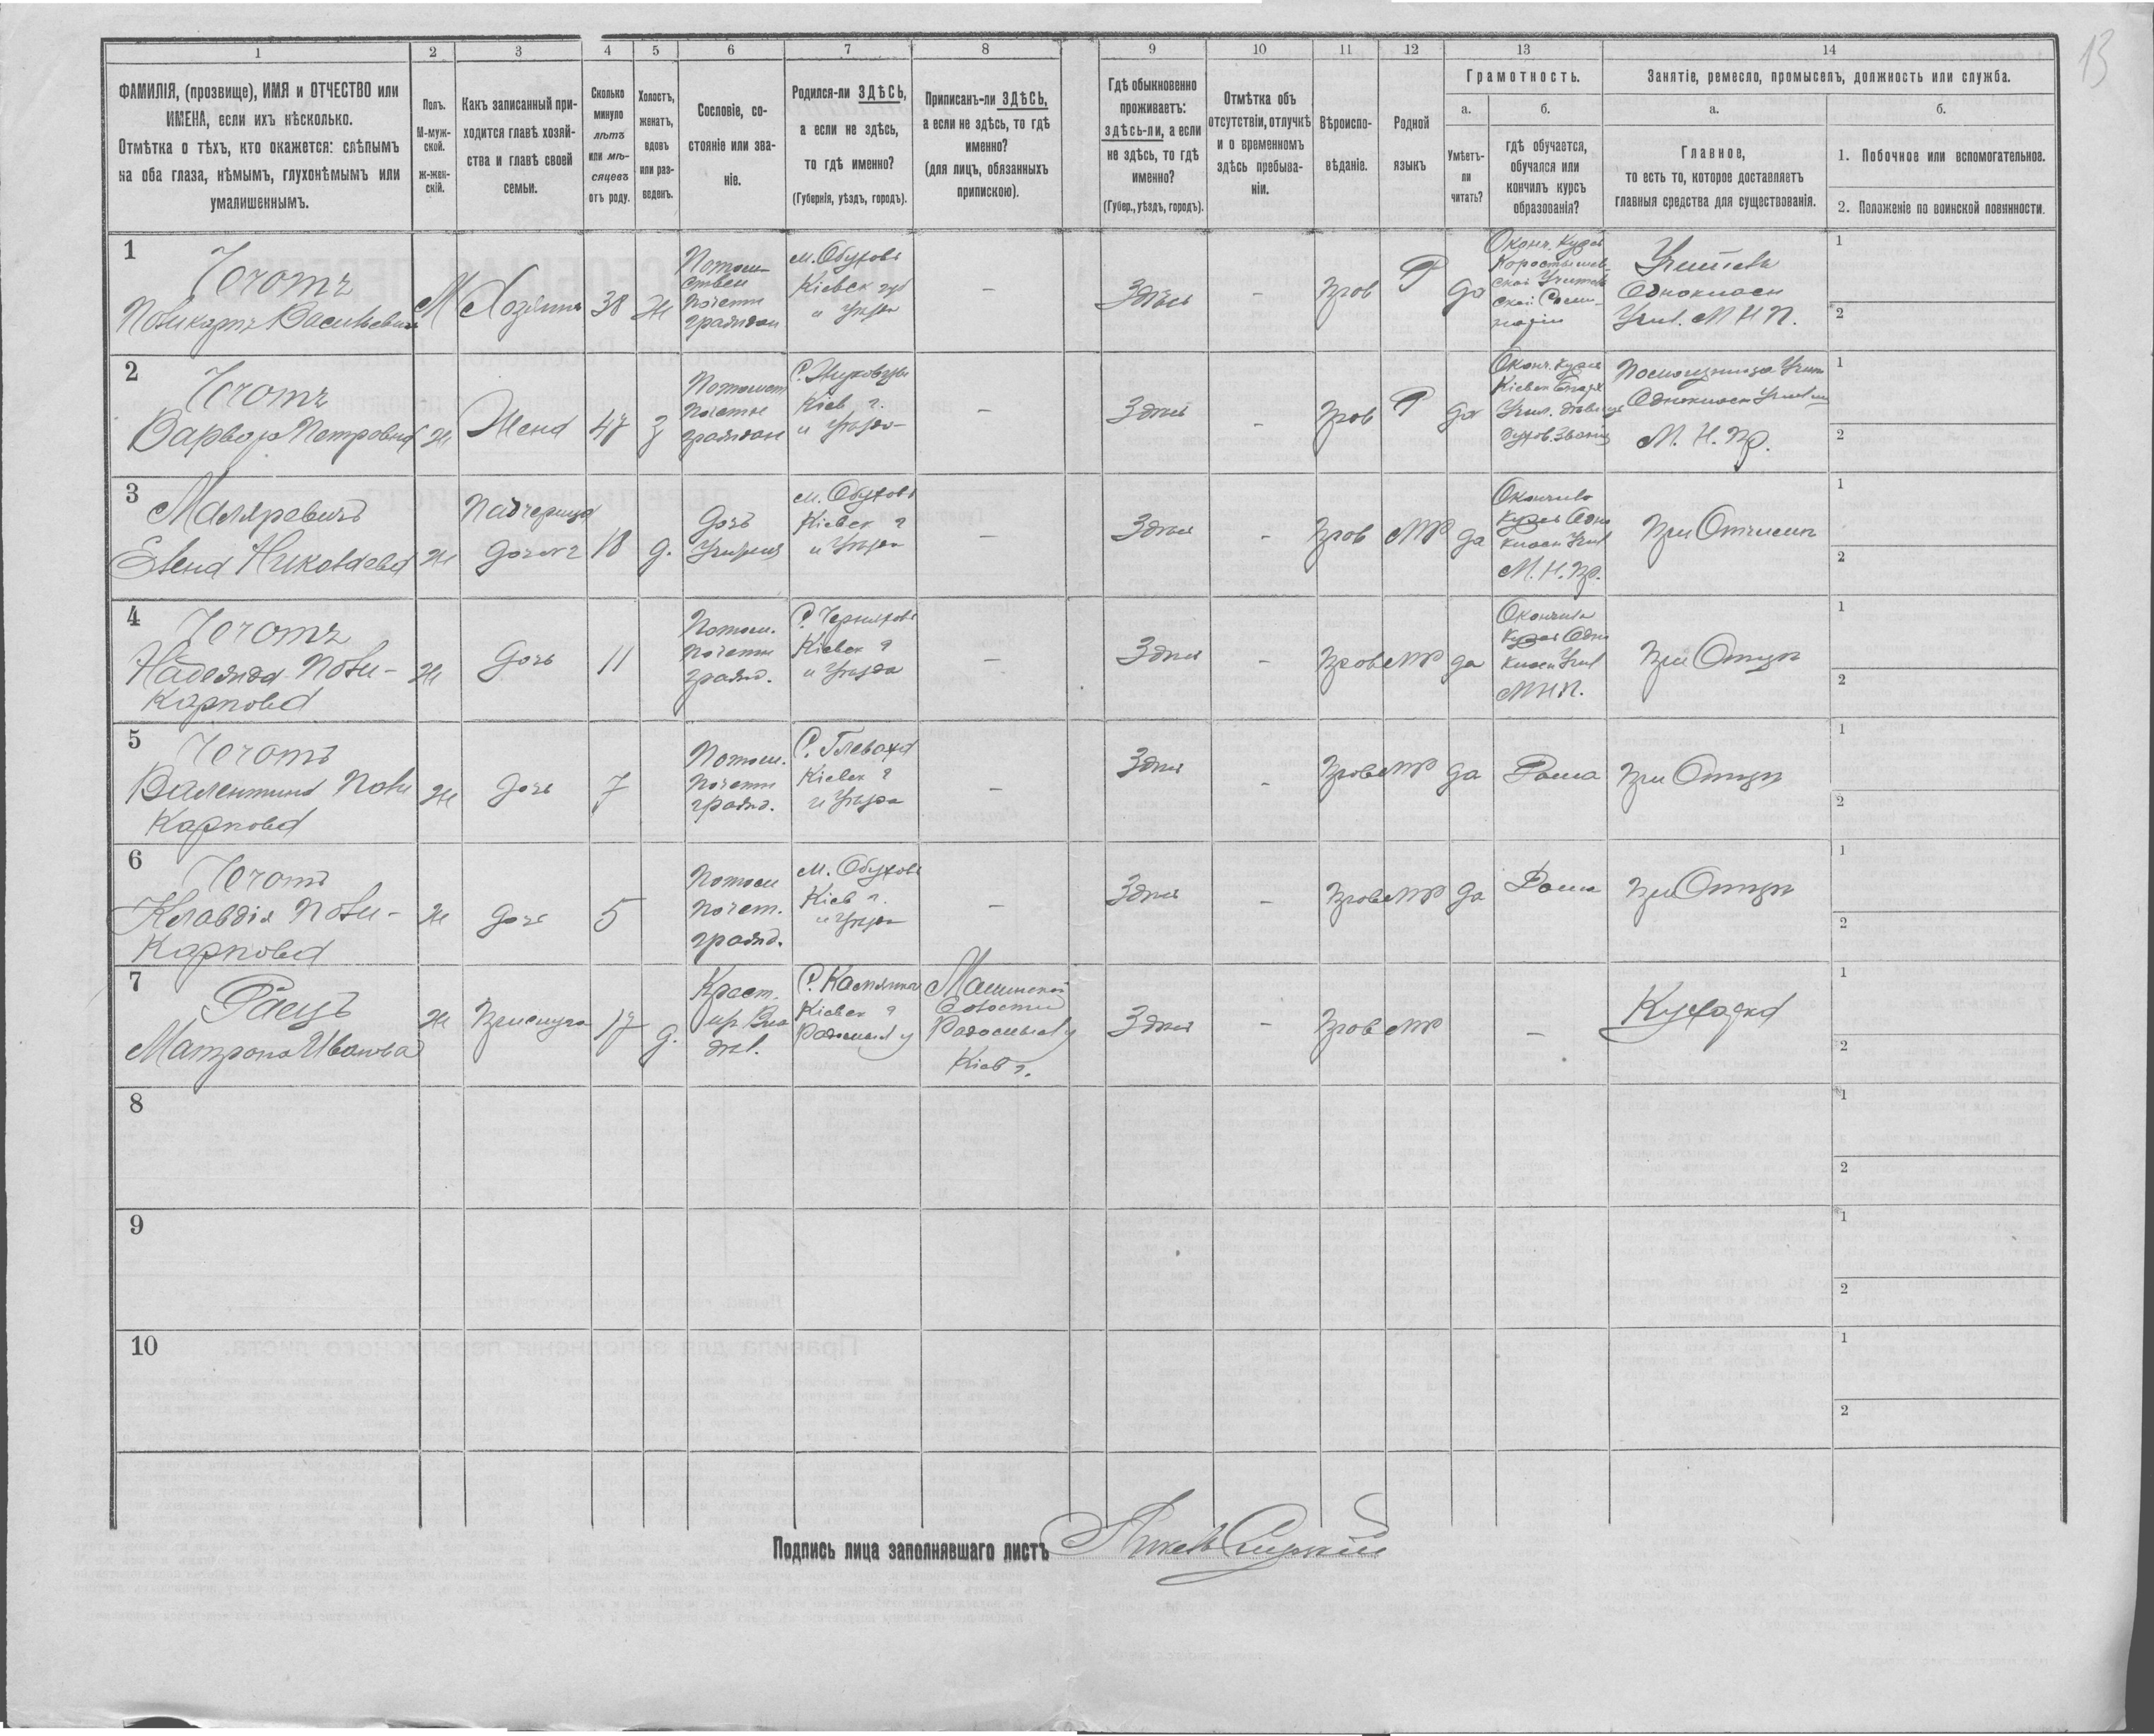 13
1 2 3 4 5 6 7 8 9 10 11 12 13 14
ФАМИЛІЯ, (прозвище), ИМЯ и ОТЧЕСТВО или
ИМЕНА, если ихъ нѣсколько.
Отмѣтка о тѣхъ, кто окажется: слѣпымъ
на оба глаза, нѣмымъ, глухонѣмымъ или
умалишеннымъ.
Полъ.
М-муж-
ской.
ж-жен-
скій.
Какъ записанный при-
ходится главѣ хозяй-
ства и главѣ своей
семьи.
Сколько
минуло
лѣтъ
или мѣ-
сяцевъ
отъ роду.
Холостъ,
женатъ,
вдовъ
или раз-
веденъ.
Сословіе, со-
стояніе или зва-
ніе.
Родился-ли ЗДѢСЬ,
а если не здѣсь,
то гдѣ именно?
(Губернія, уѣздъ, городъ).
Приписанъ-ли ЗДѢСЬ,
а если не здѣсь, то гдѣ
именно?
(для лицъ, обязанныхъ
припискою).
Гдѣ обыкновенно
проживаетъ:
здѣсь-ли, а если
не здѣсь, то гдѣ
именно?
(Губер., уѣздъ, городъ).
Отмѣтка объ
отсутствіи, отлучкѣ
и о временномъ
здѣсь пребыва-
ніи.
Вѣроиспо-
вѣданіе.
Родной
языкъ
Грамотность.
а. б.
Умѣетъ-
ли
читать?
гдѣ обучается,
обучался или
кончилъ курсъ
образованія?
Занятіе, ремесло, промыселъ, должность или служба.
а. б.
Главное,
то есть то, которое доставляетъ
главныя средства для существованія.
1. Побочное или вспомогательное.
2. Положеніе по воинской повинности.
1
Чотъ
Поликарпъ Васильевичъ
М
Хозяинъ
38
Ж
Потом-
ствен
почетн
граждан
м. Обуховъ
Кіевск губ
и Уѣзда
-
Здѣсь
-
Прав
Р
да
Оконч. Курсъ
Коростышев-
ской Учитель
ской Семи-
наріи
Учитель
Однокласн
Учил. М Н П.
1
2
2
Чотъ
Варвара Петровна
Ж
Жена
47
З
Потомст
почетн
граждан
Кіев г.
и Уѣзда
-
Здѣсь
-
Прав
Р
да
Оконч. Курсъ
Кіевск Епарх
Учил. дѣвицъ
духов. званія
Помощница Учит
Однокласн Училищ
М. Н. Пр.
1
2
3
Маляревичъ
Елена Николаева
Ж
Падчерица
дочь 2
18
д.
Дочь
м. Обуховъ
Кіевск г
и Уѣзда
-
Здѣсь
-
Прав
МР
да
Окончила
курсъ Одно
класн Учил
М. Н. Пр.
При Отчимѣ
1
2
4
Чотъ
Надежда Поли-
карпова
Ж
Дочь
11
Потом.
почетн
гражд.
С. Черняховъ
Кіевск г
и Уѣзда
-
Здѣсь
-
Прав
МР
да
Окончила
курсъ Одно
класн Учил
МНП.
При Отцѣ
1
2
5
Чотъ
Валентина Поли
карпова
Ж
Дочь
7
Потом.
почетн
гражд.
С. Глеваха
Кіевск г
и Уѣзда
-
Здѣсь
-
Прав
МР
да
Дома
При Отцѣ
1
2
6
Чотъ
Клавдія Поли-
карпова
Ж
Дочь
5
Потом
почет.
гражд.
м. Обуховъ
Кіев г.
и Уѣзда
-
Здѣсь
-
Прав
МР
да
Дома
При Отцѣ
1
2
7
Раецъ
Матрона Иванова
Ж
Прислуга
17
д.
Крест.
дѣл.
Кіевск г
Радомысл у
Малинской
Волости
Радомысл у
Кіев г.
Здѣсь
-
Прав
МР
-
Кухарка
1
2
8
1
2
9
1
2
10
1
2
Подпись лица заполнявшаго листъ